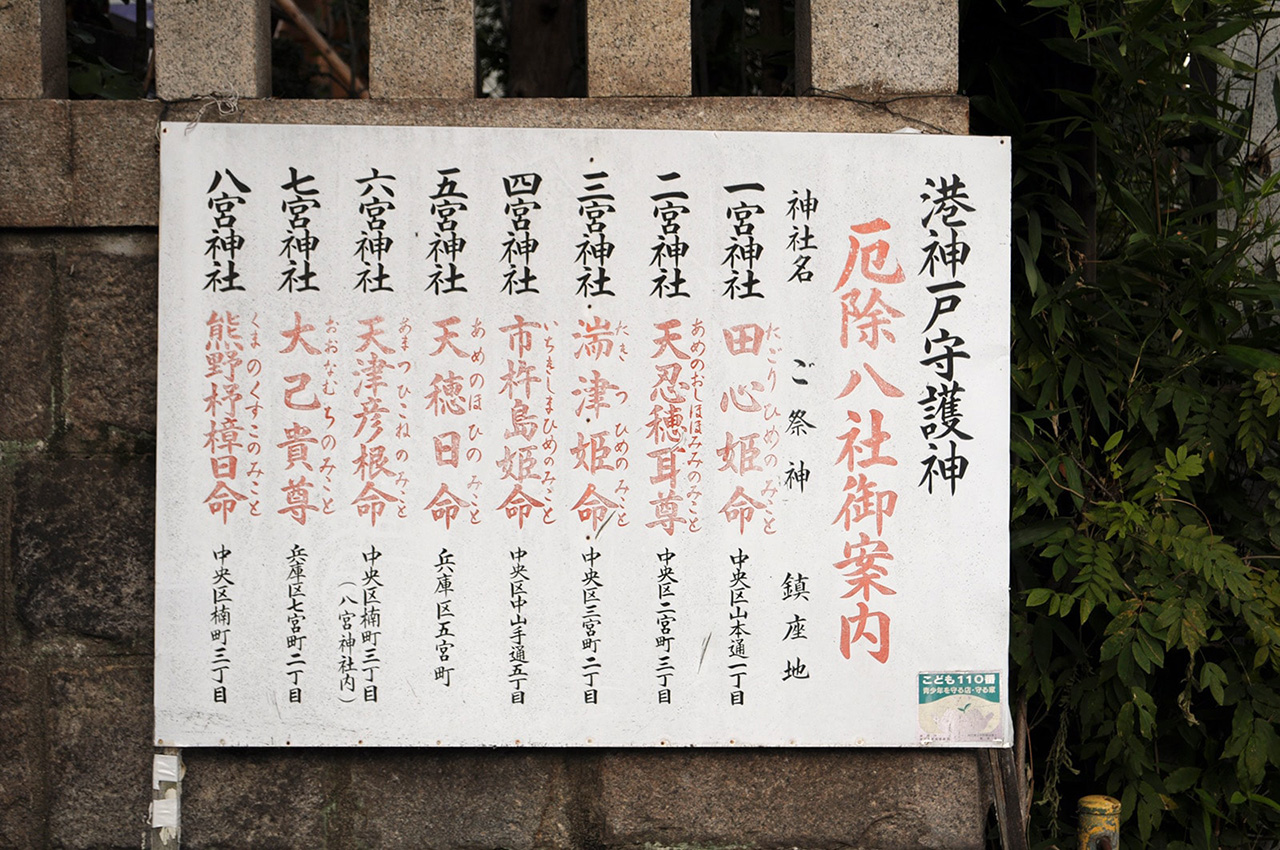 港神戸守護神
厄除八社御案内
神社名 ご祭神 鎮座地
一宮神社 田心姫命 中央区山本通一丁目
たごりひめのみこと
二宮神社 天忍穂耳尊 中央区二宮町三丁目
あめのおしほほみみのみこと
三宮神社 湍津姫命 中央区三宮町二丁目
たきつひめのみこと
四宮神社 市杵島姫命 中央区中山手通五丁目
いちきしまひめのみこと
五宮神社 天穂日命 兵庫区五宮町
あめのほひのみこと
六宮神社 天津彦根命 中央区楠町三丁目
あまつひこねのみこと
（八宮神社内）
七宮神社 大己貴尊 兵庫区七宮町二丁目
おおなむちのみこと
八宮神社 熊野杼樟日命 中央区楠町三丁目
くまのくすこのみこと
こども110番
青少年を守る店・守る家